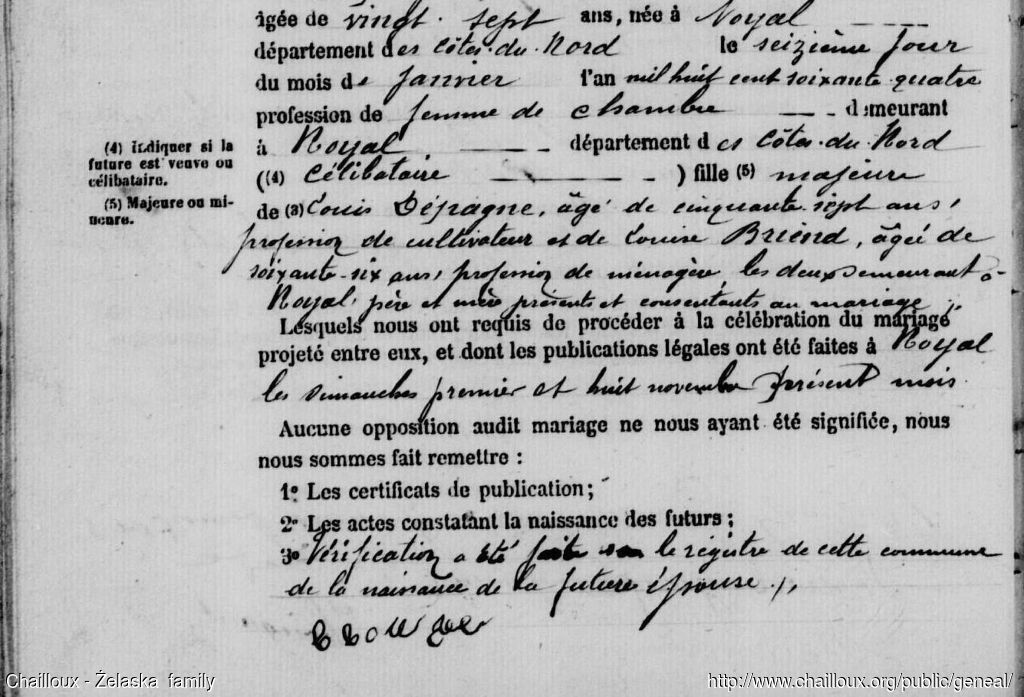 âgée de vingt-sept ans, née à Noyal
département des Côtes-du-Nord le seizième jour
du mois de janvier l'an mil huit cent soixante quatre
profession de femme de chambre demeurant
à Noyal département des Côtes-du-Nord
((4) célibataire ) fille (5) majeure
(4) Indiquer si la
future est veuve ou
célibataire.
(5) Majeure ou mi-
neure.
de (3) Louis Dépagne, âgé de cinquante-sept ans,
profession de cultivateur et de Louise Briend, âgée de
soixante-six ans, profession de ménagère, les deux demeurant à
Noyal, père et mère présents et consentants au mariage ;
Lesquels nous ont requis de procéder à la célébration du mariage
projeté entre eux, et dont les publications légales ont été faites à Noyal
les dimanches premier et huit novembre présent mois.
Aucune opposition audit mariage ne nous ayant été signifiée, nous
nous sommes fait remettre :
1° Les certificats de publication;
2° Les actes constatant la naissance des futurs ;
3° Vérification a été faite sur le registre de cette commune
de la naissance de la future épouse.
Chailloux - Żelaska family
http://www.chailloux.org/public/geneal/